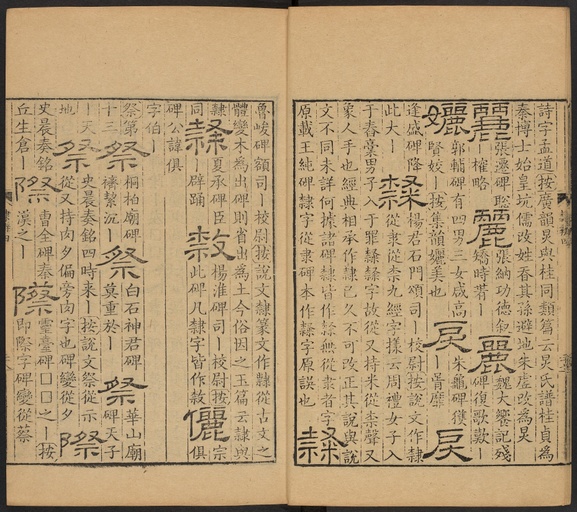 詩字孟道按廣韻炅與桂同類篇云炅氏譜桂貞為
秦博士始皇坑儒改姓呑其孫避地朱虛改為炅
麗張遷碑聰
丨權略麗張納功德叙
矯時丨麗魏大饗記殘
碑復歌歎丨
孋郭輔碑有四男三女咸高
賢姣丨按集韻孋美也戾朱龜碑獲
丨咎靡戾
逢盛碑降
此大丨隸楊君石門頌司丨校尉按說文作隸
從隶從柰九經字樣云周禮女子入
于舂槀男子入于罪隸隸字故從又持米從柰聲又
象人手也經典相承作隸已久不可改正其說與說
文不同未詳何據諸碑隸皆作隸無從隶者字
原載王純碑隸字從隶碑本作隸字原誤也隸
魯峻碑額司丨校尉按說文隸篆文作隸從古文之
體變木為出碑則省出為土今俗因之玉篇云隸與
隸同隸夏承碑臣
丨辟踊隸楊淮碑司丨校尉按
此碑凡隸字皆作敖儷宗俱
碑公諱俱
字伯丨
祭第
十三祭桐柏廟碑
禱絜沉丨祭白石神君碑
莫重於丨祭華山廟
碑天子
丨天
地祭史晨奏銘四時來丨按說文祭從示
從又持肉夕偏旁肉字也碑變從夕際
史晨奏銘
丘生倉丨際曹全碑秦
漢之丨際靈臺碑□□之丨按
即際字碑變從蔡